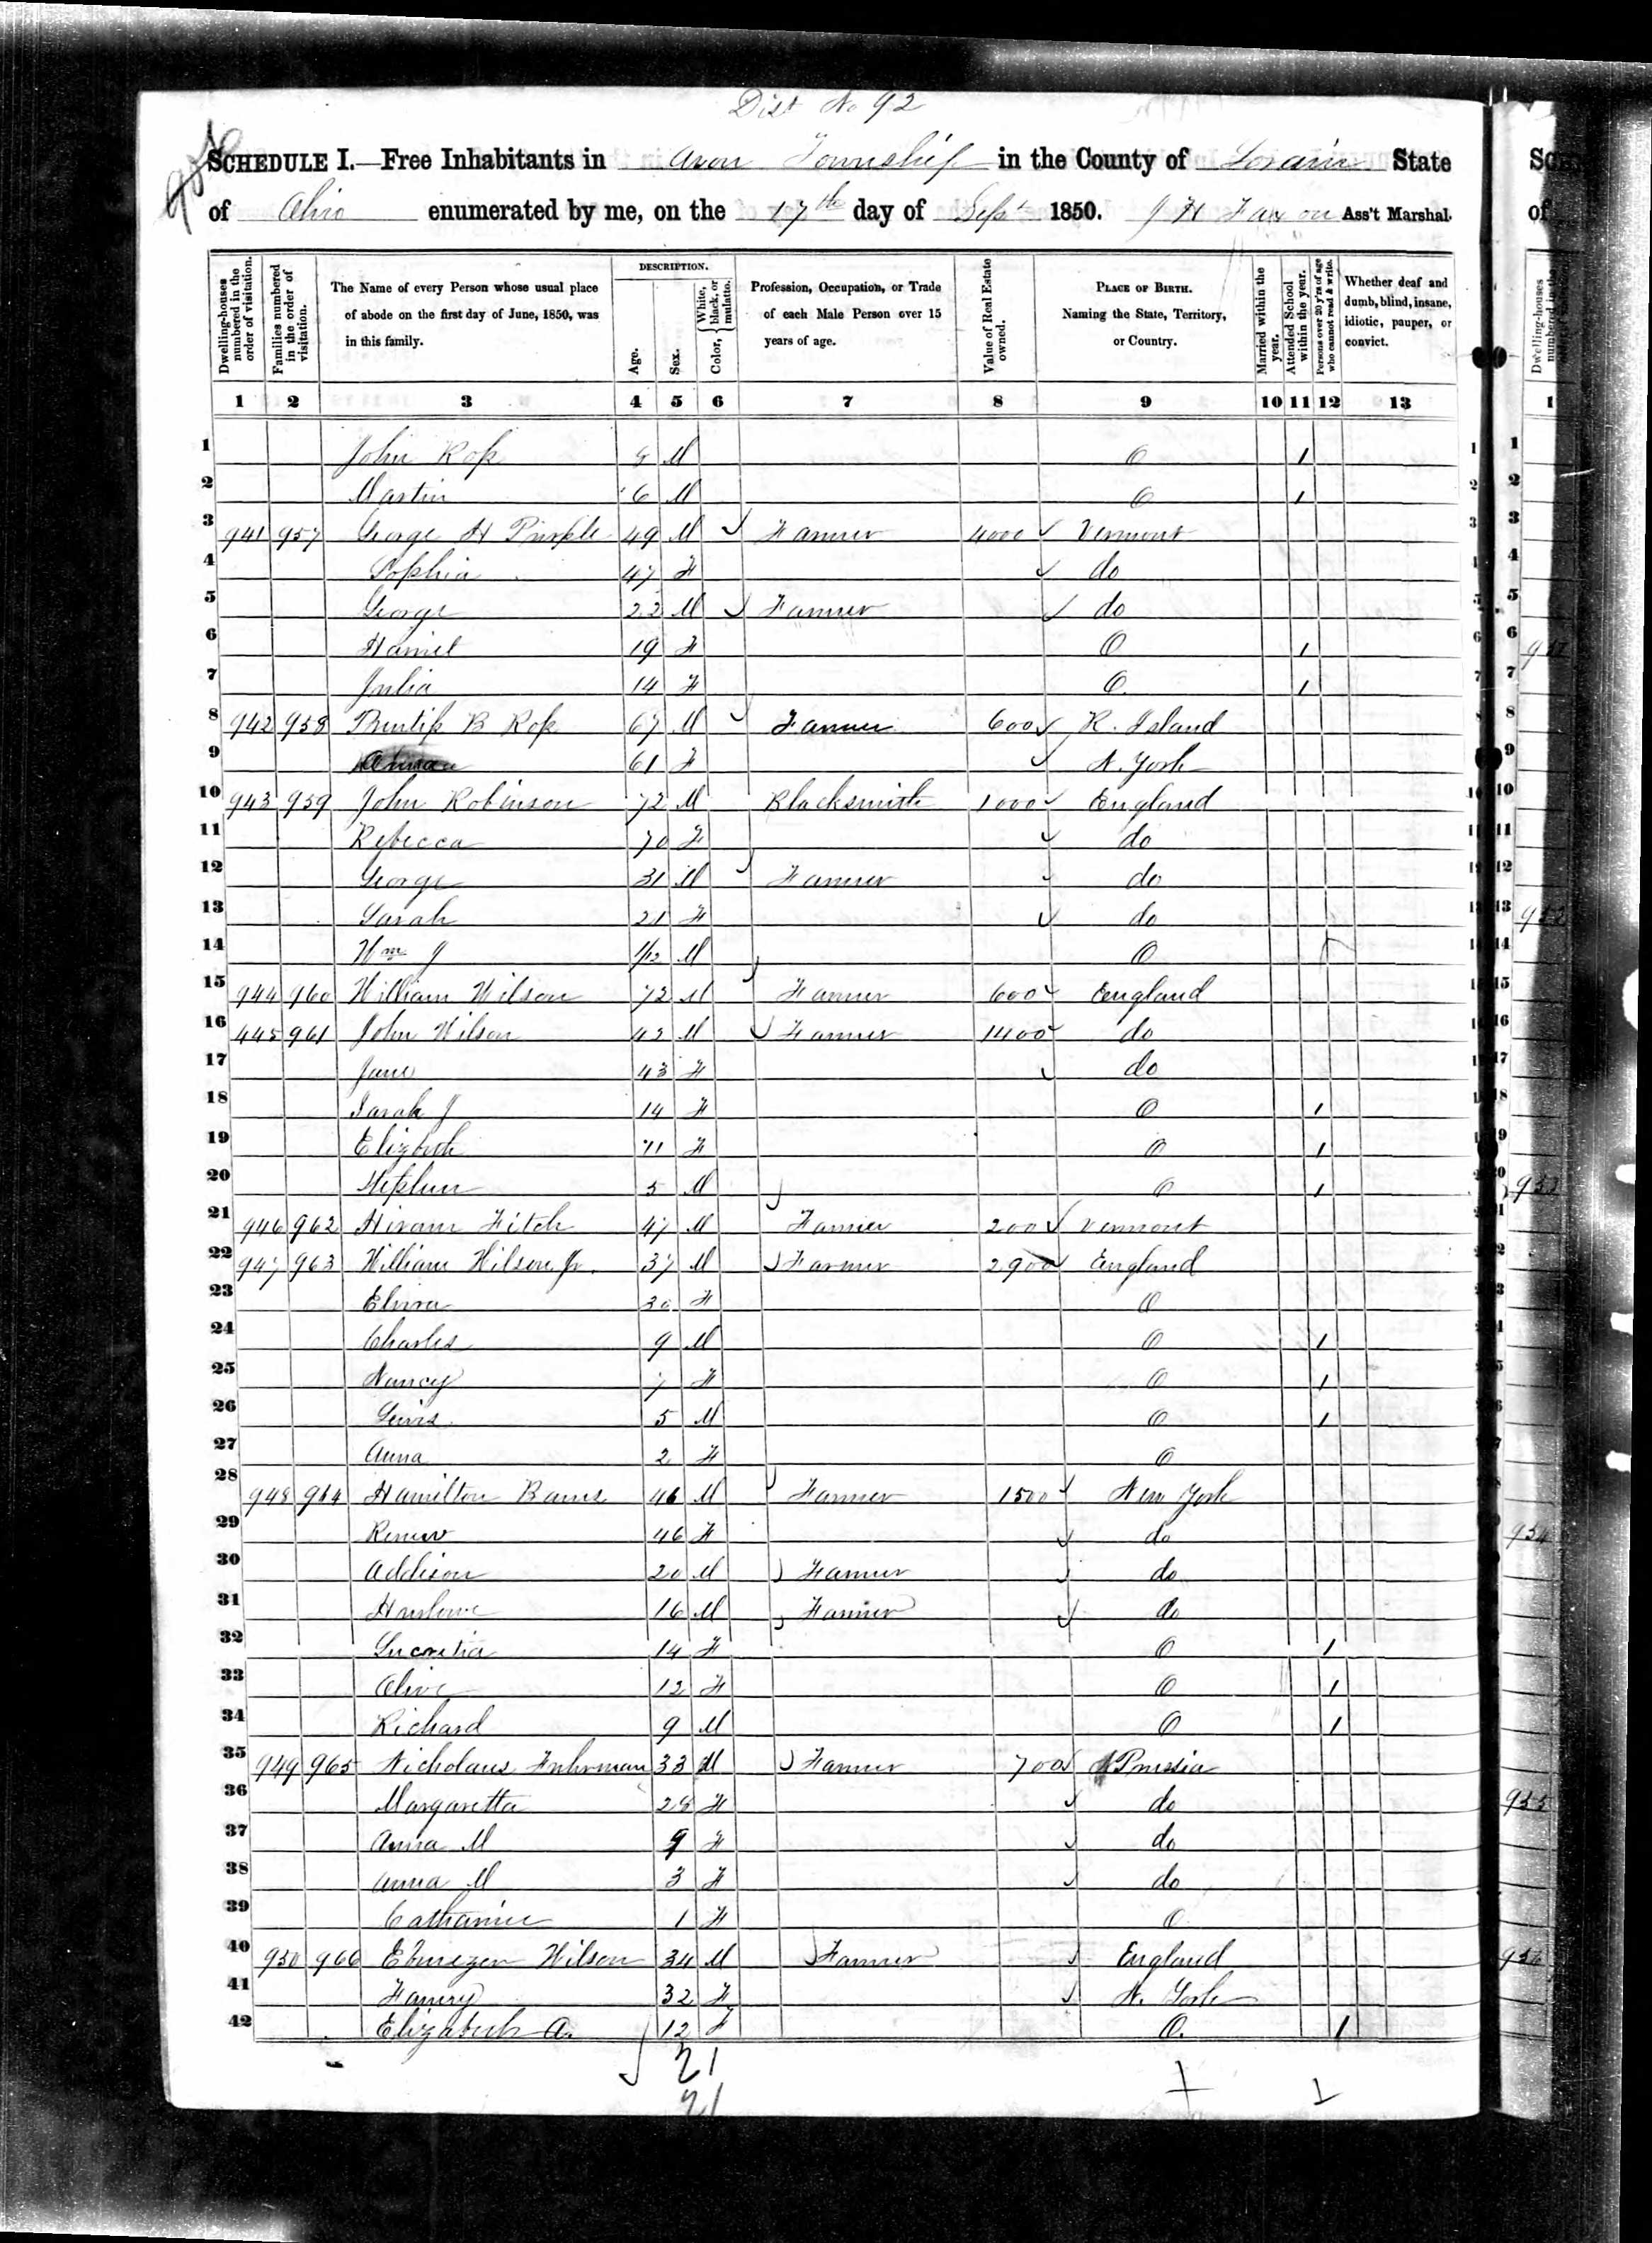 Dist No 92
SCHEDULE I.—Free Inhabitants in Avon Township in the County of Lorain State
of Ohio enumerated by me, on the 17th day of Sept 1850. J H Faxon Ass't Marshal.
Dwelling-houses numbered in the order of visitation.
Families numbered in the order of visitation.
The Name of every Person whose usual place of abode on the first day of June, 1850, was in this family.
DESCRIPTION.
Age.
Sex.
Color, { White, black, or mulatto.
Profession, Occupation, or Trade of each Male Person over 15 years of age.
Value of Real Estate owned.
PLACE OF BIRTH. Naming the State, Territory, or Country.
Married within the year.
Attended School within the year.
Persons over 20 y'rs of age who cannot read & write.
Whether deaf and dumb, blind, insane, idiotic, pauper, or convict.
1 2 3 4 5 6 7 8 9 10 11 12 13
1 John Ross 8 M O 1
2 Martin 6 M O 1
3 941 957 George H Purple 49 M Farmer 4000 Vermont
4 Sophia 47 F do
5 George 22 M Farmer do
6 Harriet 19 F O 1
7 Julia 14 F O 1
8 942 958 B Ross 67 M Farmer 600 R. Island
9 61 F N. York
10 943 959 John Robinson 72 M Blacksmith 1000 England
11 Rebecca 70 F do
12 George 31 M Farmer do
13 Sarah 21 F do
14 Wm J 1/12 M O
15 944 960 William Wilson 72 M Farmer 600 England
16 445 961 John Wilson 42 M Farmer 1400 do
17 Jane 43 F do
18 Sarah J 14 F O 1
19 Elizbeth 11 F O 1
20 Stephen 5 M O 1
21 946 962 Hiram Fitch 47 M Farmer 200 Vermont
22 947 963 William Wilson Jr. 37 M Farmer 2900 England
23 Elmira 30 F O
24 Charles 9 M O 1
25 Nancy 7 F O 1
26 Lewis 5 M O 1
27 Anna 2 F O
28 948 964 Hamilton Barnes 46 M Farmer 1500 New York
29 46 F do
30 Addison 20 M Farmer do
31 16 M Farmer do
32 Lucretia 14 F O 1
33 Olive 12 F O 1
34 Richard 9 M O 1
35 949 965 Nicholaus Fuhrman 33 M Farmer 700 Prussia
36 Margaretta 28 F do
37 Anna M 9 F do
38 Anna M 3 F do
39 Catharine 1 F O
40 950 966 Ebenezer Wilson 34 M Farmer England
41 Fanny 32 F N. York
42 Elizabeth A. 12 F O. 1
21
21